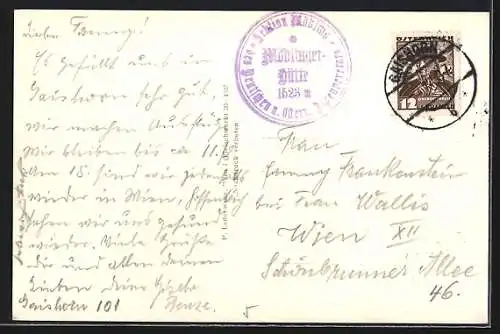 Liebe Fanny!
Es gefällt uns in
Gaishorn sehr gut,
wir machen Ausflüge
Wir bleiben bis ca 11.
Am 15. sind wir jedenfalls
wieder in Wien, hoffentlich
sehen wir uns gesund
wieder. Viele Grüße
dir und allen deinen
Lieben deine
Gaishorn 101
Sektion Mödling
des Deutschen u. Österr. Alpenvereins
Mödlinger-
Hütte
1523 m
ÖSTERREICH
GAISHORN
12
Frau
Fanny Frankenstein
bei Frau Wallis
Wien XII
Schönbrunner Allee
46.
5